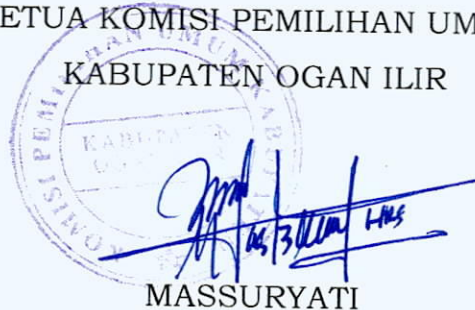 ETUA KOMISI PEMILIHAN UM
KABUPATEN OGAN ILIR
KOMISI PEMILIHAN UMUM KAB
KABUPATEN
MASSURYATI